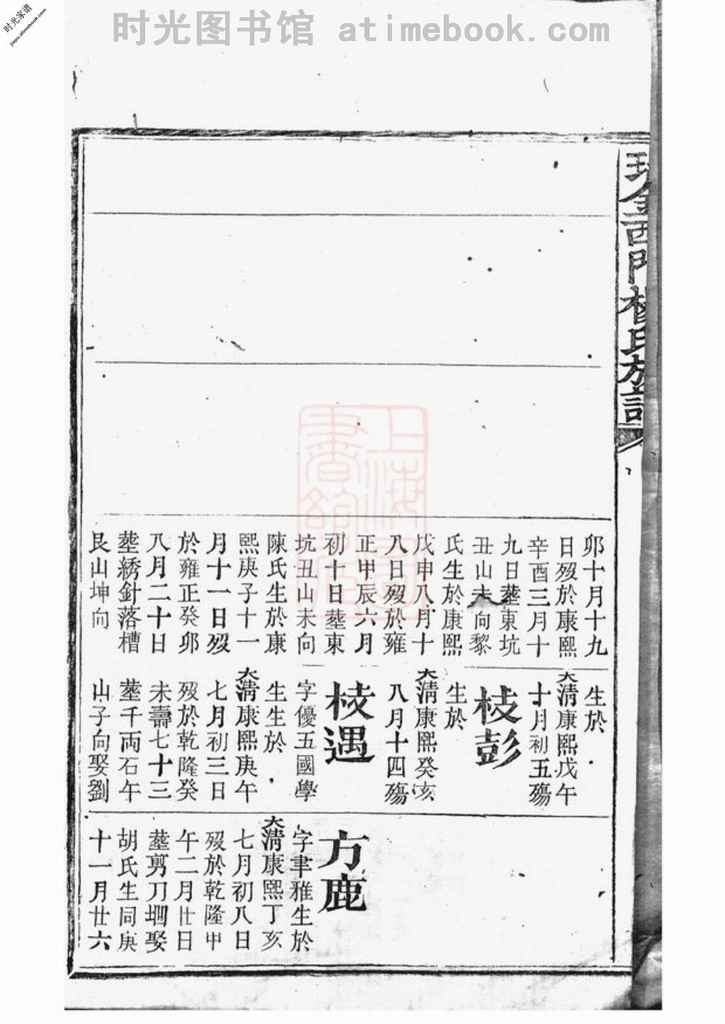 时光图书馆 atimebook.com
时光家谱
金西門楊氏族譜
卯十月十九
日歿於康熙
辛酉三月十
九日塟東坑
丑山未向黎
氏生於康熙
戊申八月十
八日歿於雍
正甲辰六月
初十日塟東
坑丑山未向
陳氏生於康
熙庚子十一
月十一日歿
於雍正癸卯
八月二十日
塟綉針落槽
艮山坤向
生於
大清康熙戊午
十月初五殤
枝彭
生於
大清康熙癸亥
八月十四殤
枝遇
字優五國學
生生於
大清康熙庚午
七月初三日
歿於乾隆癸
未壽七十三
塟千兩石午
山子向娶劉
方鹿
字聿雅生於
大清康熙丁亥
七月初八日
歿於乾隆甲
午二月廿日
塟剪刀㘭娶
胡氏生同庚
十一月廿六
上海圖書館藏